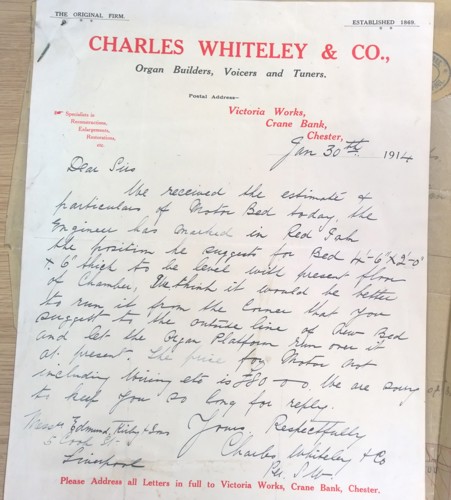 THE ORIGINAL FIRM.
ESTABLISHED 1869.
CHARLES WHITELEY & CO.,
Organ Builders, Voicers and Tuners.
Postal Address—
Victoria Works,
Crane Bank,
Chester,
Specialists in
Reconstructions,
Enlargements,
Renovations,
etc.
Jan 30th 1914
Dear Sirs
We received the estimate &
particulars of Motor Bed today, the
Engineer has marked in Red Ink
the position he suggest for Bed 4'-6" x 2'-0"
x 6" thick to be level with present floor
of Chamber, We think it would be better
to run it from the corner that you
suggest to the outside line of New Bed
and let the Organ Platform run over it
at present. The price for Motor not
including Wiring etc is £80-0-0. We are sorry
to keep you so long for reply.
Yours Respectfully
Messrs Edmund Kirby & Sons
Charles Whiteley & Co
5 Cook St
Liverpool
Please Address all Letters in full to Victoria Works, Crane Bank, Chester.